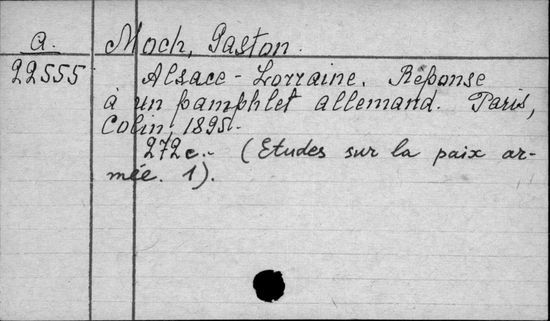 a. Moch, Gaston.
22555 Alsace-Lorraine. Réponse
à un pamphlet allemand. Paris,
Colin, 1895.
272 c. (Etudes sur la paix ar-
mée. 1).